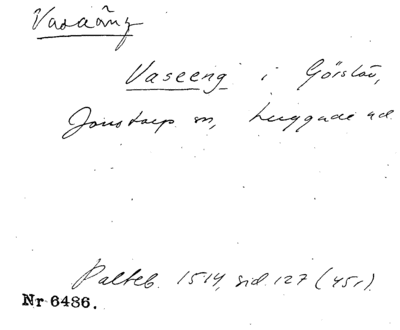 Vasaäng
Vaseeng i Görslöv,
Jonstorp sn, Luggude hd.
Palteb. 1514, sid. 127 (451).
Nr 6486.